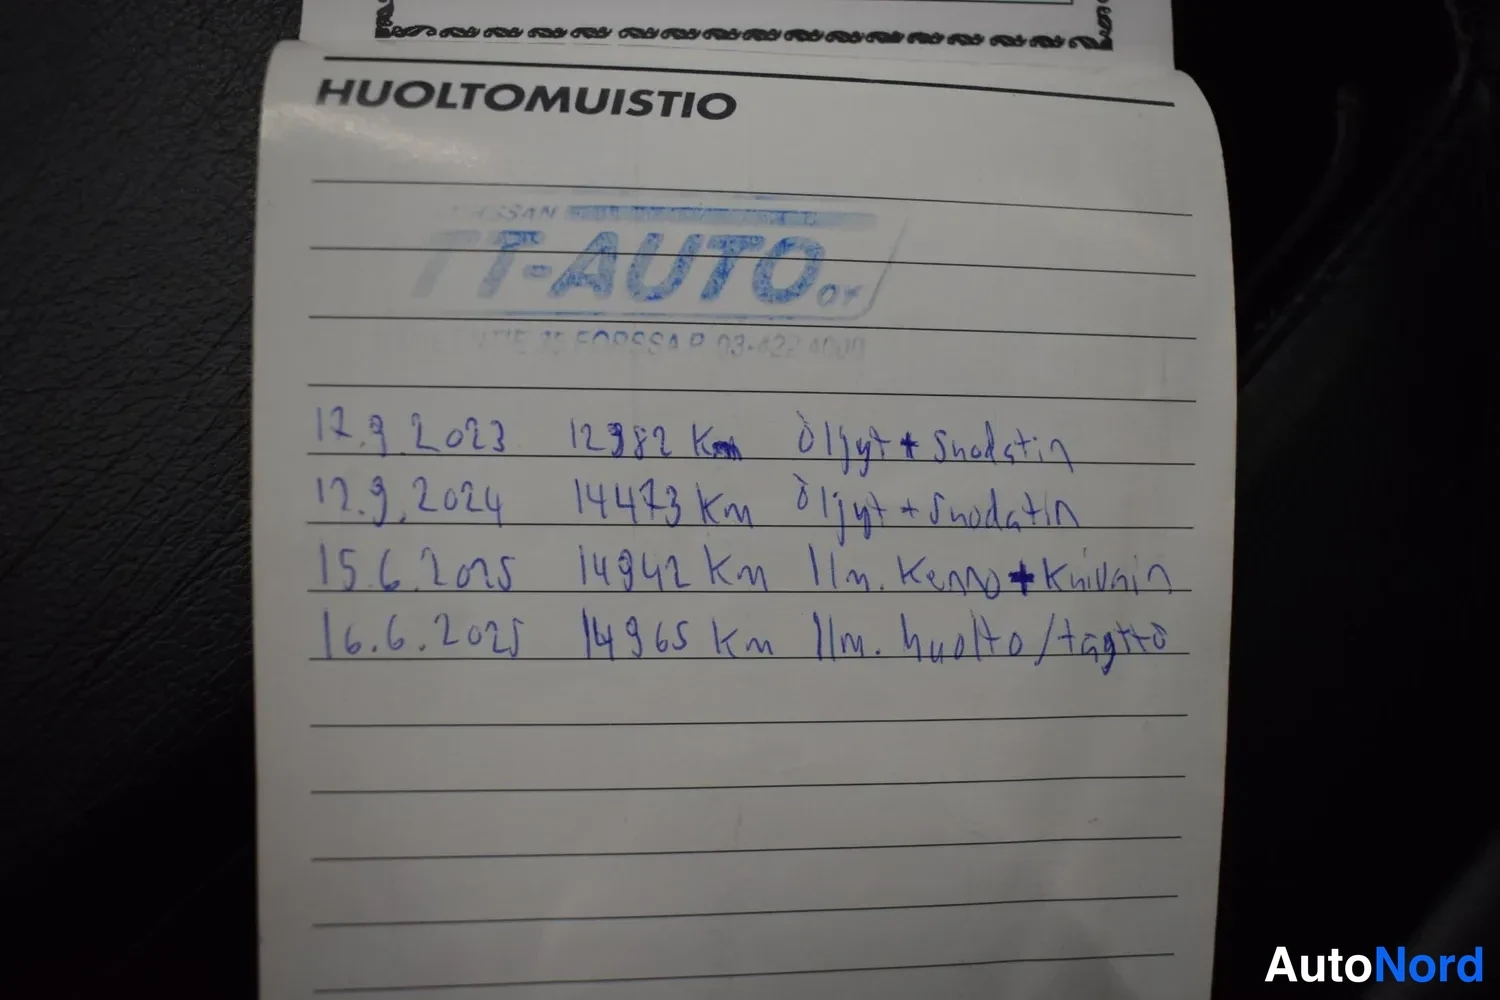 HUOLTOMUISTIO
TT-AUTO OY
FORSSA P. 03-422 4000
12.9.2023 12982 Km Öljyt + Suodatin
12.9.2024 14473 Km Öljyt + Suodatin
15.6.2025 14942 Km Ilm. Kenno + Kuivain
16.6.2025 14965 Km Ilm. huolto/täyttö
AutoNord